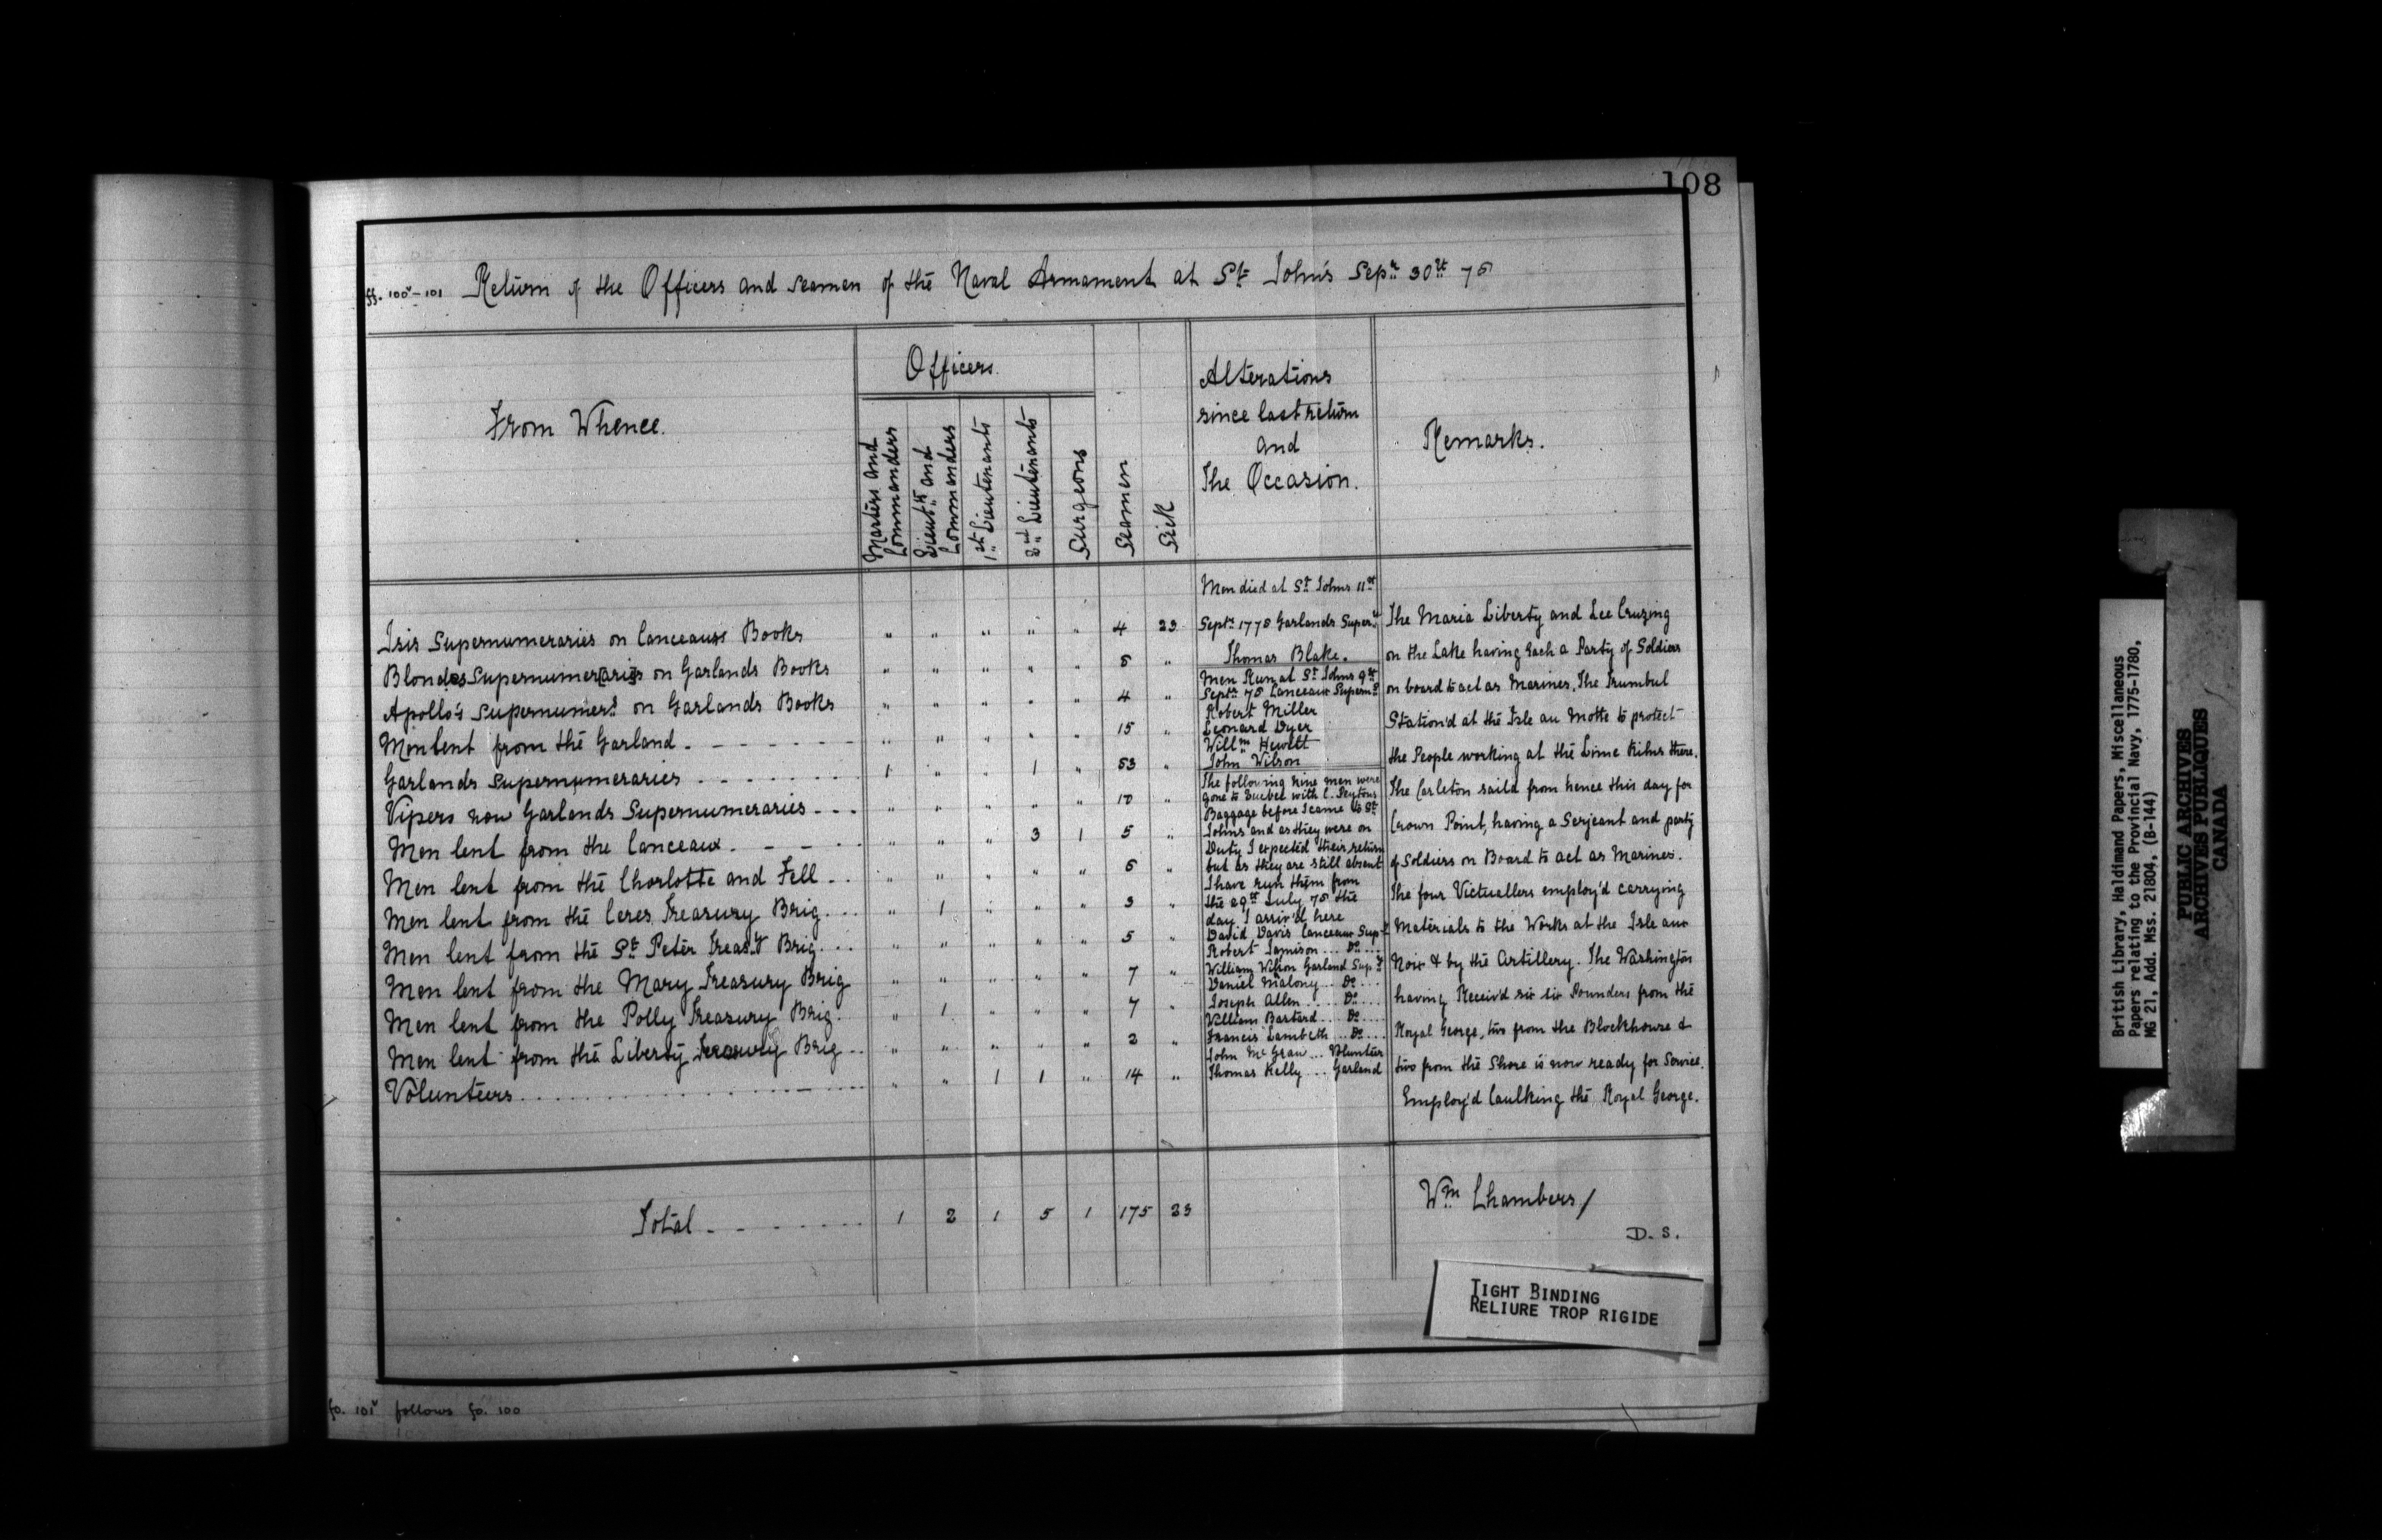 108
ff. 100v-101 Return of the Officers and Seamen of the Naval Armament at St Johns Sepr 30th 78
From Whence.
Officers.
Masters and Commanders
Lieuts and Commanders
1st Lieutenants
2nd Lieutenants
Surgeons
Seamen
Sick
Alterations
since last return
and
The Occasion.
Remarks.
Isis Supernumeraries on Canceaux Books " " " " " 4 23
Blondes Supernumeraries on Garlands Books " " " " " 5 "
Apollo's Supernumers on Garlands Books " " " " " 4 "
Men lent from the Garland " " " " " 15 "
Garlands Supernumeraries 1 " " 1 " 53 "
Vipers now Garlands Supernumeraries " " " " "
Men lent from the Canceaux " " " 3 1 5 "
Men lent from the Charlotte and Fell " " " " "
Men lent from the Ceres Treasury Brig " 1 " " " 3 "
Men lent from the St Peter Treasy Brig " " " " " 5 "
Men lent from the Mary Treasury Brig " " " " " 7 "
Men lent from the Polly Treasury Brig. " 1 " " " 7 "
Men lent from the Liberty Treasury Brig " " " " " 2 "
Volunteers " " 1 1 " 14 "
Total 1 2 1 5 1 175 23
Men died at St Johns 11th
Septr 1778 Garlands Supery
Thomas Blake.
Men Run at St Johns 9th
Septr 78 Canceaux Supern
Robert Miller
Leonard Dyer
Willm Hewitt
John Wilson
The following nine men were
gone to Quebec with C. Peytons
Baggage before I came to St
Johns and as they were on
Duty I expected their return
but as they are still absent
I have run them from
the 29th July 78 the
day I arriv'd here
David Davis Canceaux Supy
Robert Jamison Do
William Wilson Garland Supy
Daniel Malony Do
Joseph Allen Do
William Bastard Do
Francis Lambeth Do
John McGraw Volunteer
Thomas Kelly Garland
The Maria Liberty and Lee Cruzing
on the Lake having Each a Party of Soldiers
on board to act as Marines, The Trumbul
Station'd at the Isle au Motte to protect
the People working at the Lime Kilns there.
The Carleton sail'd from hence this day for
Crown Point, having a Serjeant and party
of Soldiers on Board to act as Marines.
The four Victuallers employ'd carrying
Materials to the Works at the Isle aux
Noix & by the Artillery. The Washington
having Receiv'd six six Pounders from the
Royal George, two from the Blockhouse &
two from the Shore is now ready for Service.
Employ'd Caulking the Royal George.
Wm Chambers/
D. S.
TIGHT BINDING
RELIURE TROP RIGIDE
fo. 101v follows fo. 100
British Library, Haldimand Papers, Miscellaneous
Papers relating to the Provincial Navy, 1775-1780,
MG 21, Add. Mss. 21804, (B-144)
PUBLIC ARCHIVES
ARCHIVES PUBLIQUES
CANADA